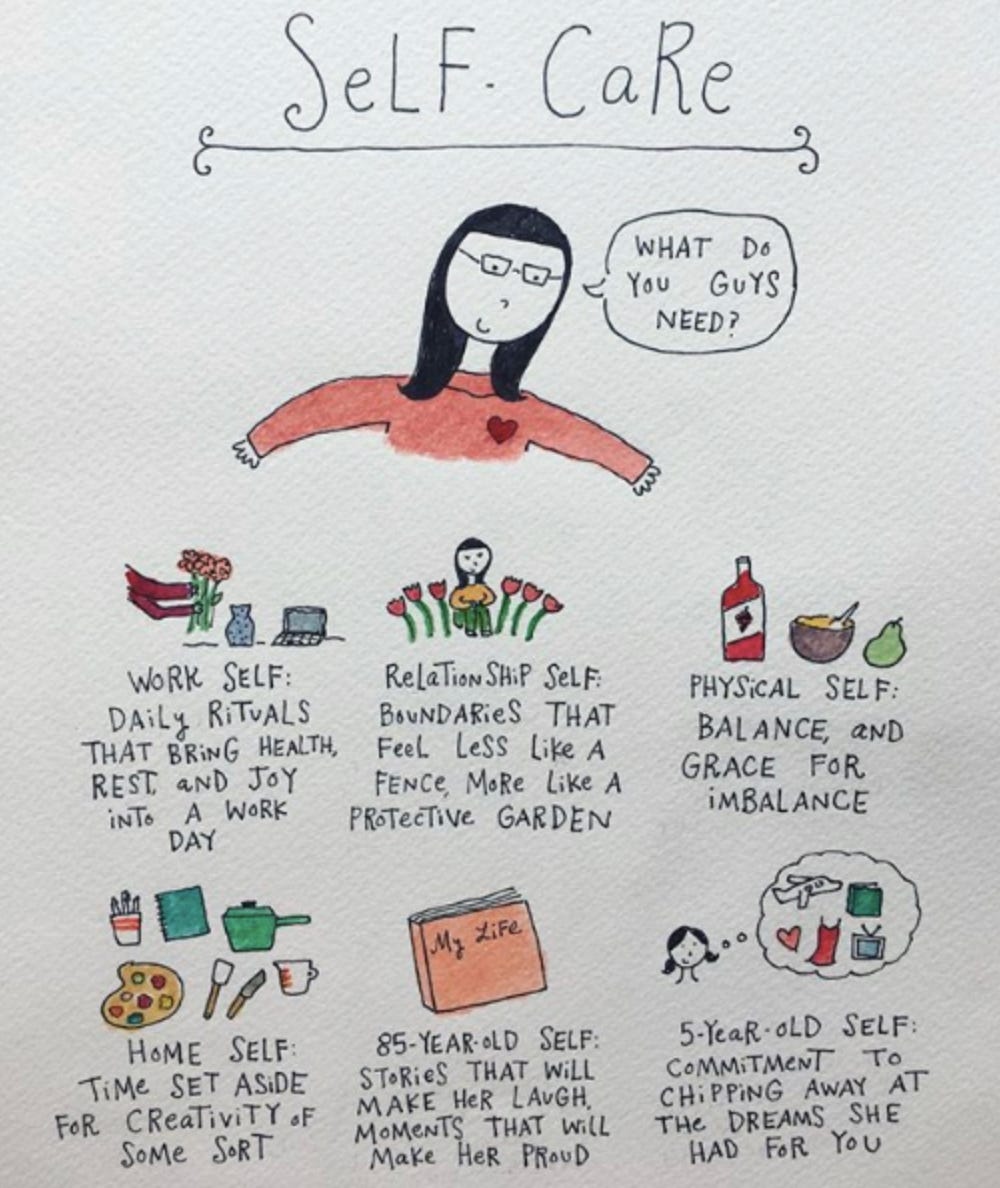 SeLF-CaRe
WHAT Do
You GuYS
NEED?
WORK SELF:
DAiLy RiTUALS
THAT BRiNG HEALTH,
REST, aND JOY
iNTo A WoRK
DAY
ReLaTioNSHiP SeLF:
BouNDARieS THAT
FeeL LeSS LiKe A
FENCE, MoRe LiKe A
PRoTecTiVe GARDEN
PHYSiCAL SELF:
BALANCE, aND
GRACE FOR
iMBALANCE
HoME SELF:
TiMe SET ASiDE
FoR CReaTiViTY oF
SoMe SoRT
My LiFe
85-YEAR-oLD SELF:
SToRieS THAT WiLL
MAKE HeR LAUGH,
MoMeNTS THAT WiLL
MaKe HeR PRoUD
5-YeaR-oLD SELF:
CoMMiTMENT To
CHiPPiNG AWAY AT
THe DREAMS SHE
HAD FoR YoU